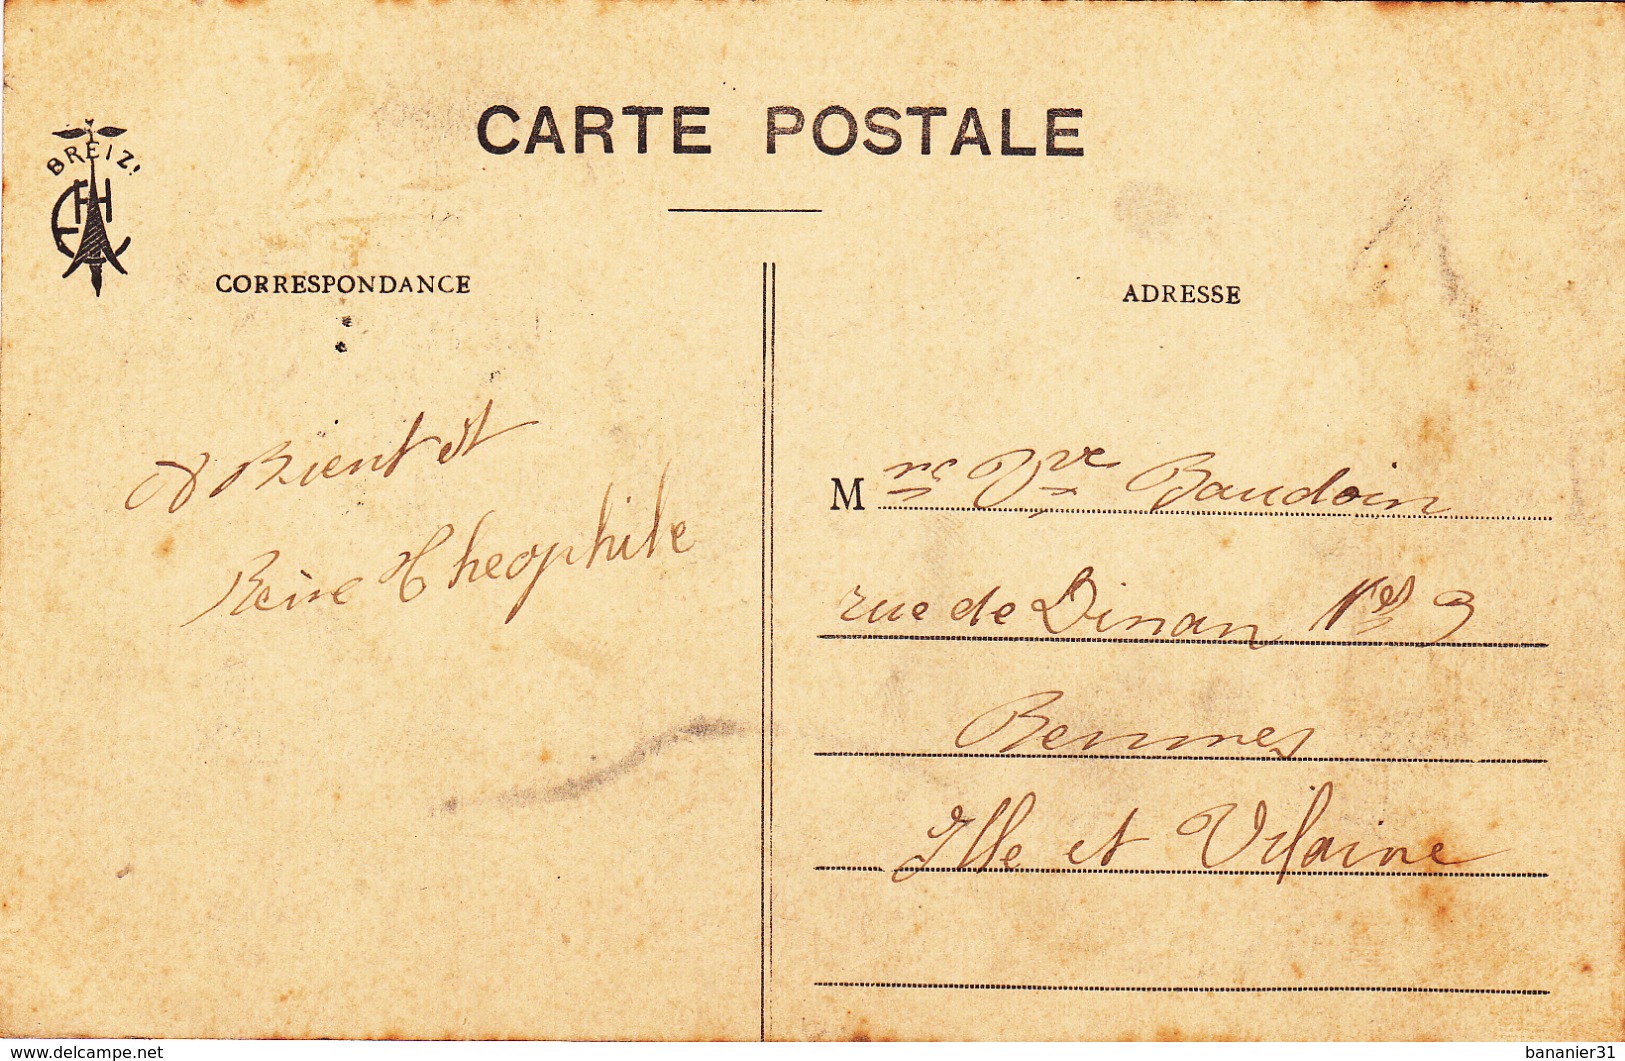 CARTE POSTALE
BREIZ!
CORRESPONDANCE
ADRESSE
A Bientot
Réné Theophile
Mme Vve Baudoin
rue de Dinan
Rennes
Ille et Vilaine
www.delcampe.net
bananier31